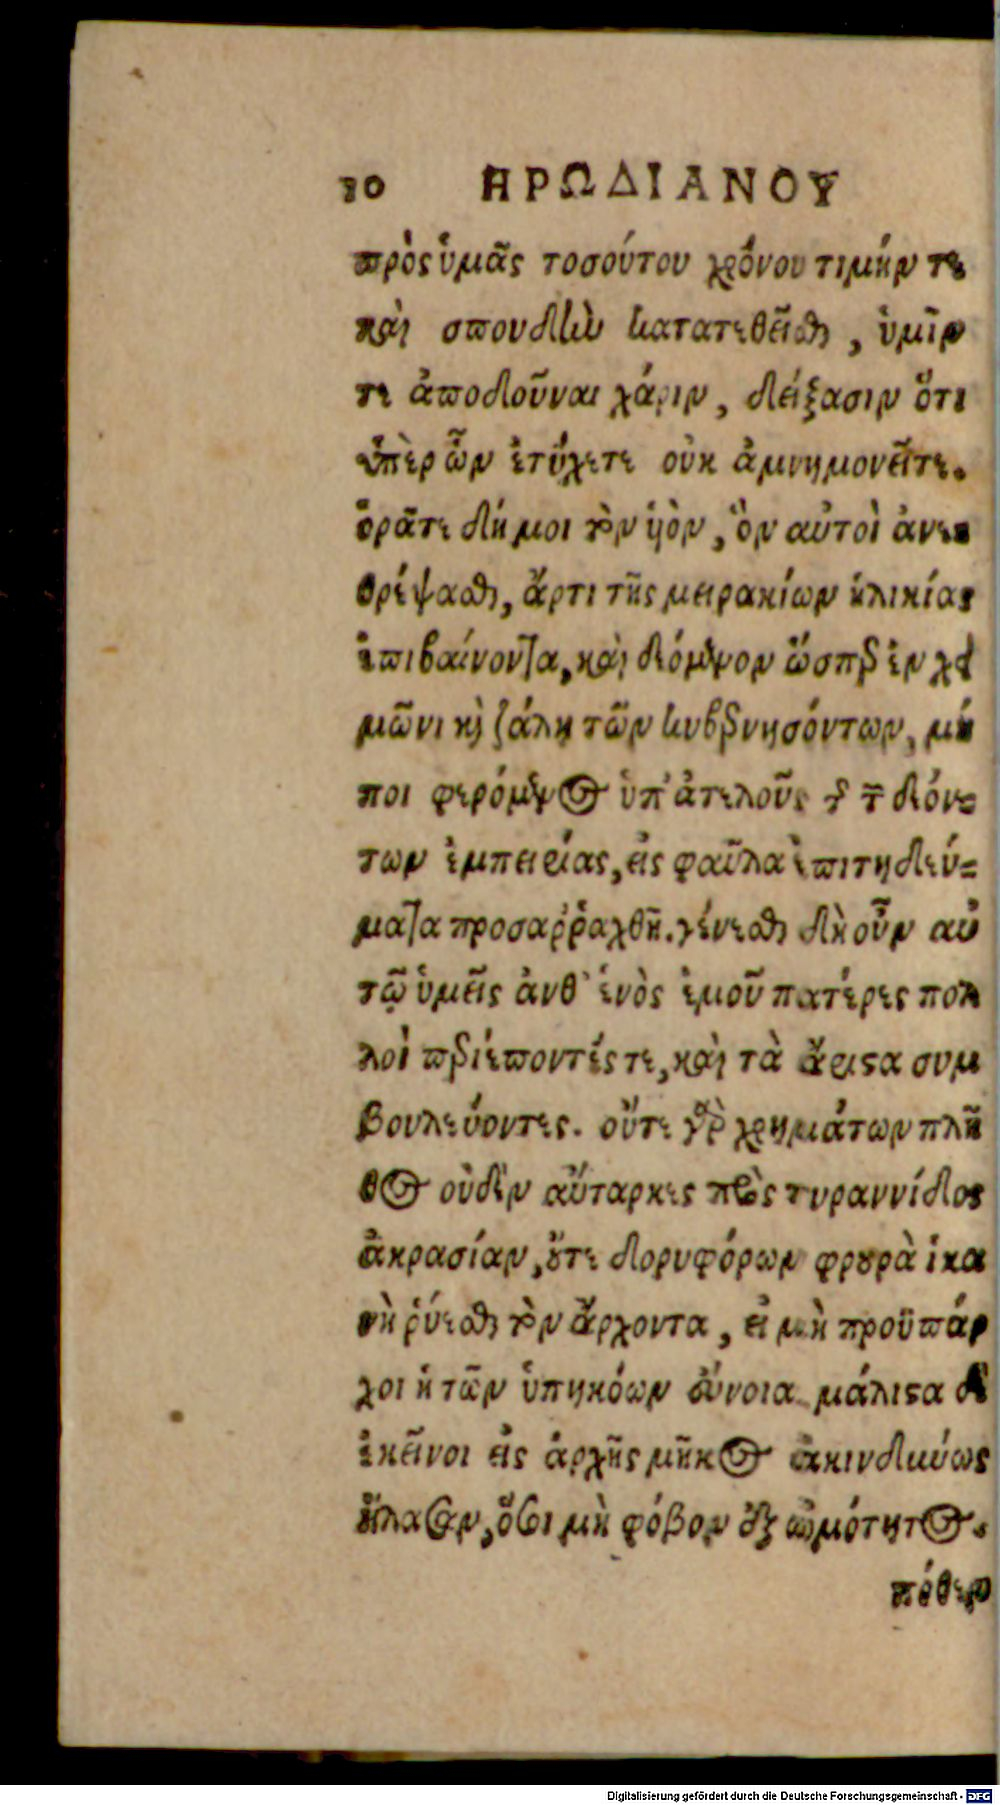 10 ΗΡΩΔΙΑΝΟΥ
πρὸς ὑμᾶς τοσούτου χρόνου τιμήν τε
καὶ σπουδὴν κατατεθεῖσθαι, ὑμῖν
τε ἀποδοῦναι χάριν, δείξασιν ὅτι
ὑπὲρ ὧν ἐτύχετε οὐκ ἀμνημονεῖτε.
ὁρᾶτε δή μοι τὸν ὑὸν, ὃν αὐτοὶ ἀνε-
θρέψασθε, ἄρτι τῆς μειρακίων ἡλικίας
ἐπιβαίνοντα, καὶ δεόμενον ὥσπερ ἐν χει
μῶνι καὶ ζάλῃ τῶν κυβερνησόντων, μή
ποι φερόμενος ὑπ' ἀτελοῦς τῆς τῶν δεόν=
των ἐμπειρίας, εἰς φαῦλα ἐπιτηδεύ=
ματα προσαῤῥαχθῇ. γένεσθε δὴ οὖν αὐ
τῷ ὑμεῖς ἀνθ' ἑνὸς ἐμοῦ πατέρες πολ
λοὶ περιέποντές τε, καὶ τὰ ἄριστα συμ
βουλεύοντες. οὔτε γὰρ χρημάτων πλῆ
θος οὐδὲν αὔταρκες πρὸς τυραννίδος
ἀκρασίαν, οὔτε δορυφόρων φρουρὰ ἱκα
νὴ ῥύεσθαι τὸν ἄρχοντα, εἰ μὴ προϋπάρ
χοι ἡ τῶν ὑπηκόων εὔνοια. μάλιστα δὲ
ἐκεῖνοι εἰς ἀρχῆς μῆκος ἀκινδύνως
ἤλασαν, ὅσοι μὴ φόβον ἐξ ὠμότητος.
πόθεν
Digitalisierung gefördert durch die Deutsche Forschungsgemeinschaft - DFG